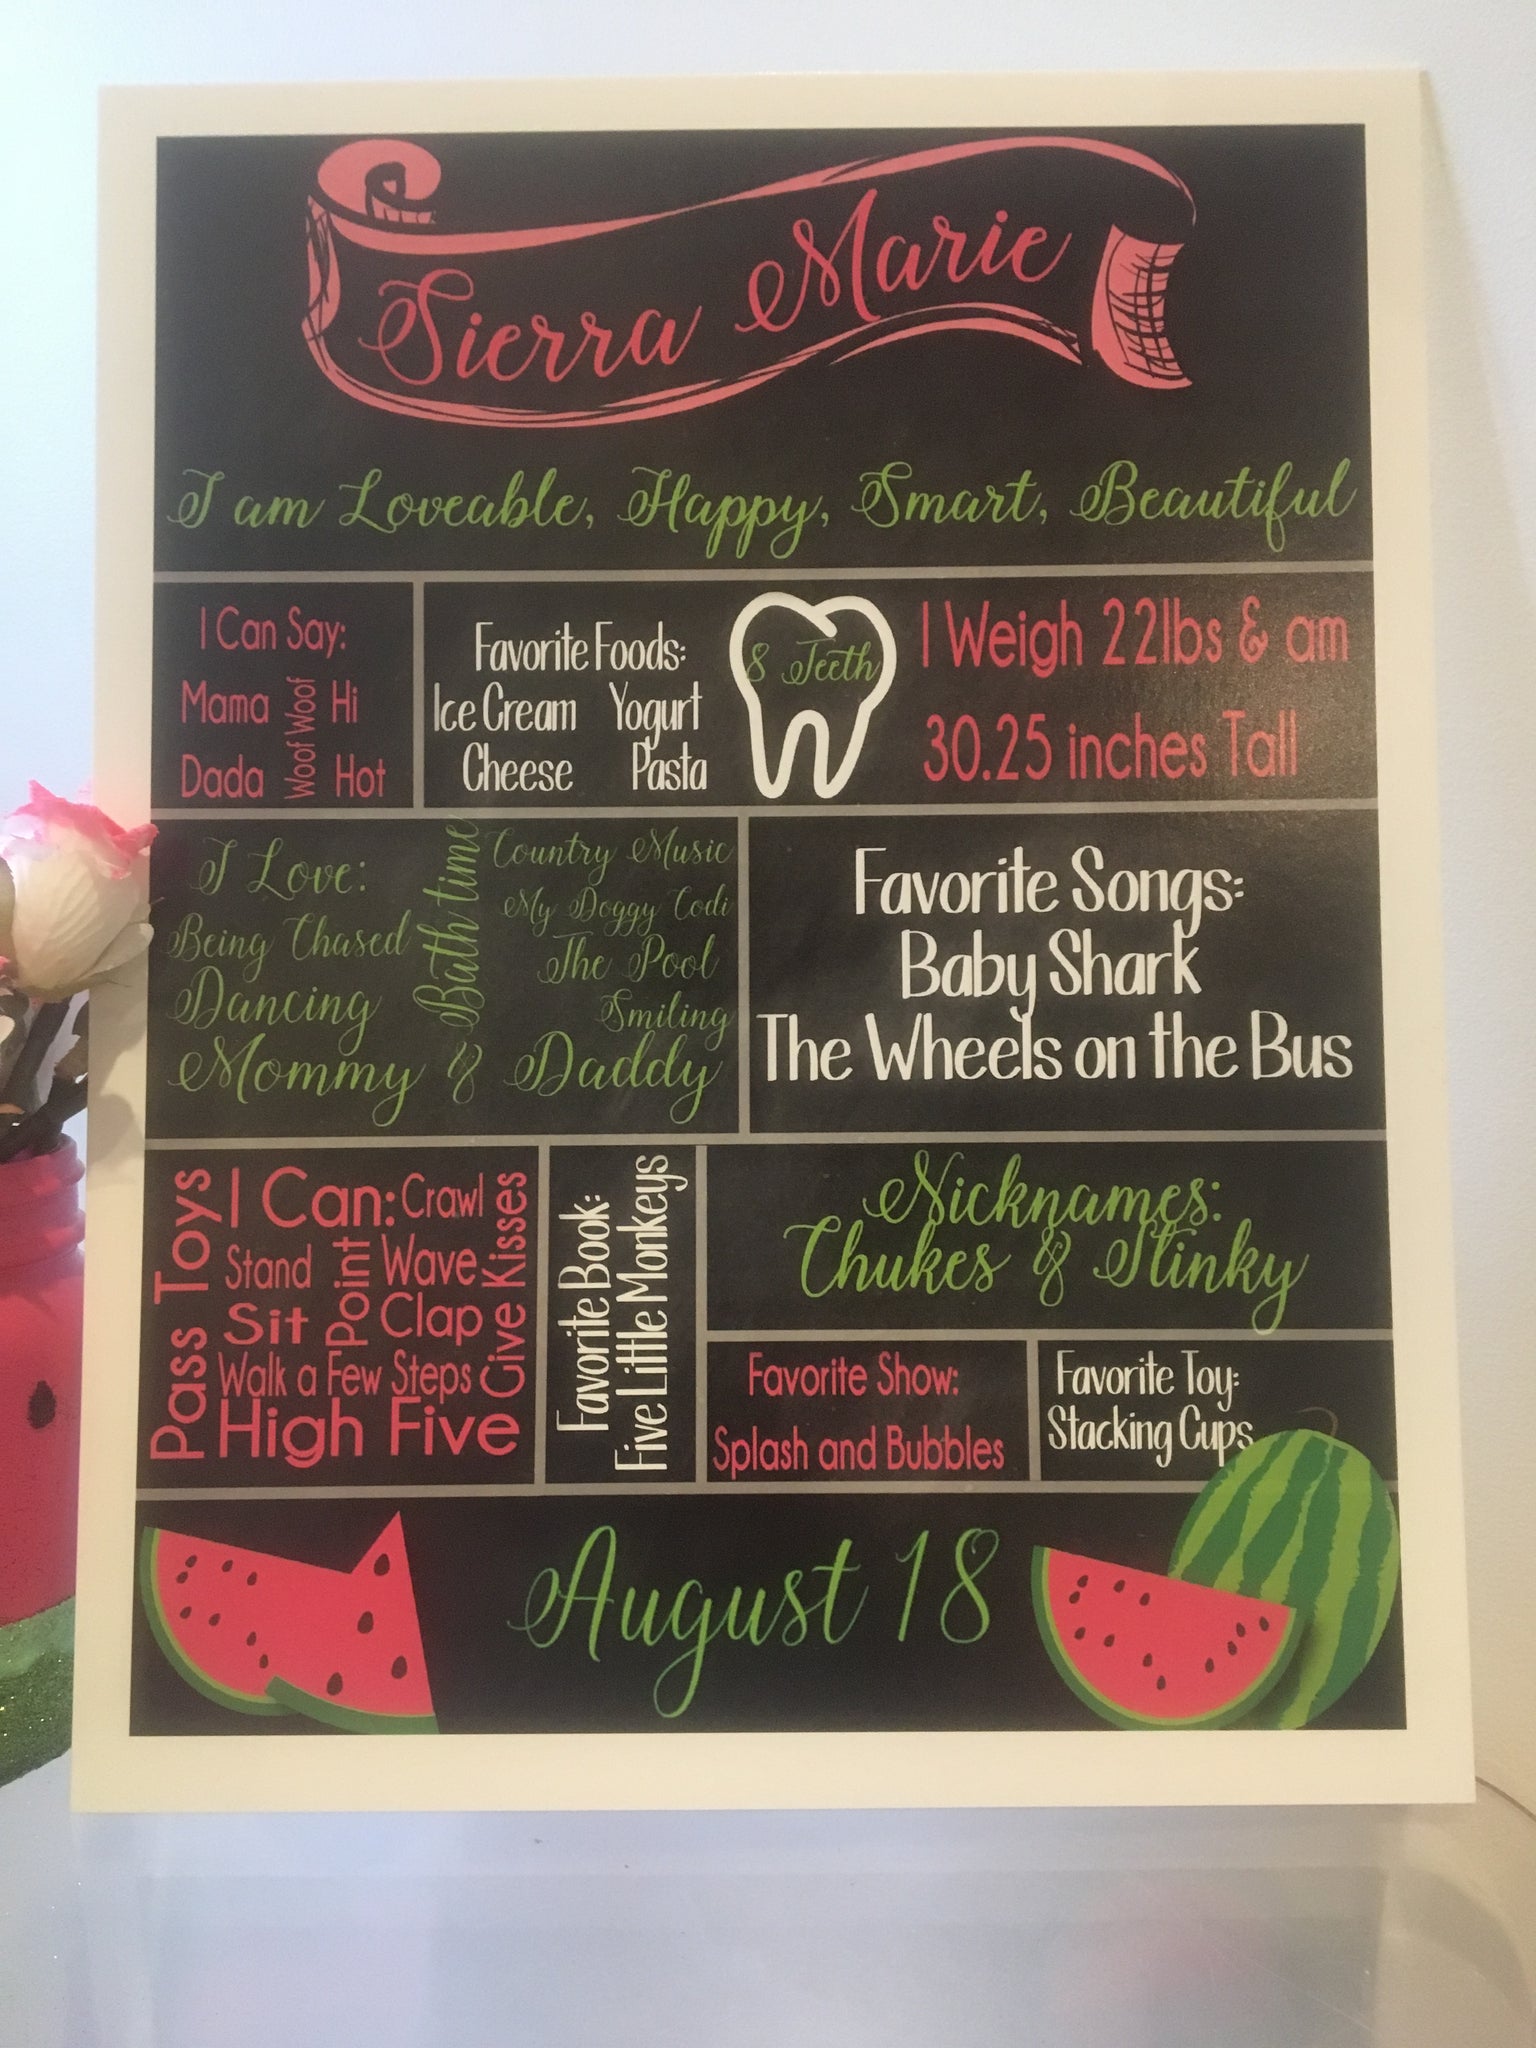 Sierra Marie
I am Loveable, Happy, Smart, Beautiful
I Can Say:
Mama
Dada
Woof Woof
Hi
Hot
Favorite Foods:
Ice Cream Yogurt
Cheese Pasta
8 Teeth
I Weigh 22lbs & am
30.25 inches Tall
I Love:
Being Chased
Dancing
Bath time
Country Music
My Doggy Codi
The Pool
Smiling
Mommy & Daddy
Favorite Songs:
Baby Shark
The Wheels on the Bus
Pass Toys
I Can:
Crawl
Stand
Point
Wave
Sit
Clap
Give Kisses
Walk a Few Steps
High Five
Favorite Book:
Five Little Monkeys
Nicknames:
Chukes & Stinky
Favorite Show:
Splash and Bubbles
Favorite Toy:
Stacking Cups
August 18